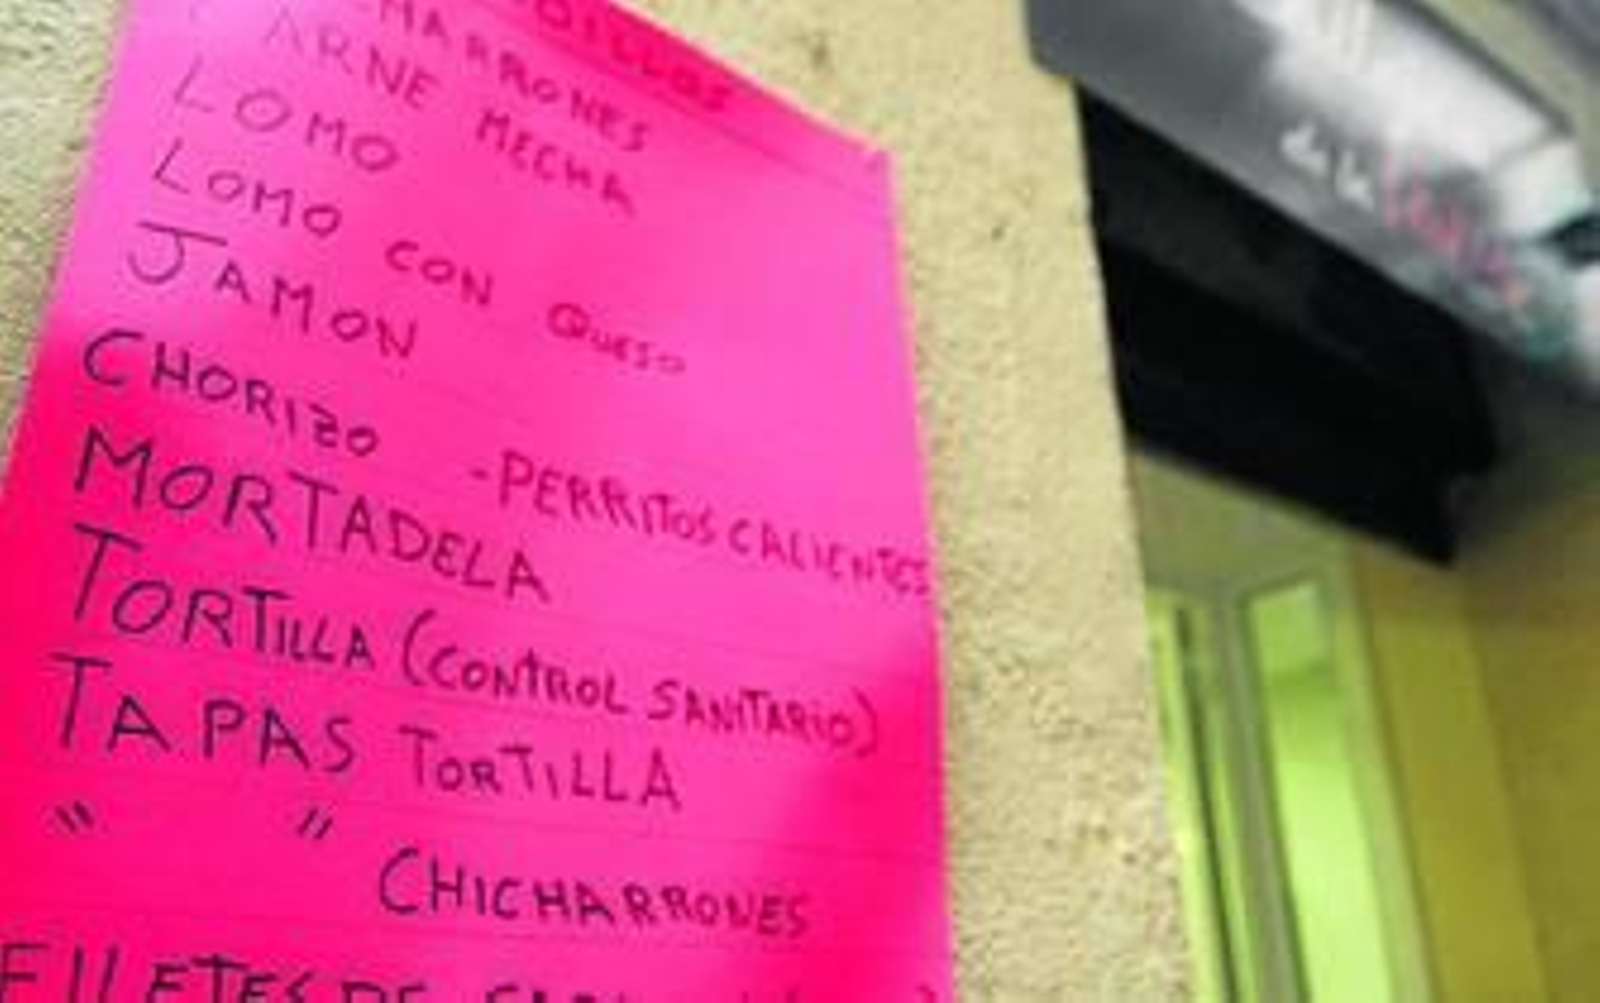 CARNE MECHA
LOMO
LOMO CON QUESO
JAMON
CHORIZO
-PERRITOS CALIENTES
MORTADELA
TORTILLA (CONTROL SANITARIO)
TAPAS TORTILLA
" " CHICHARRONES
FILETES DE
de la